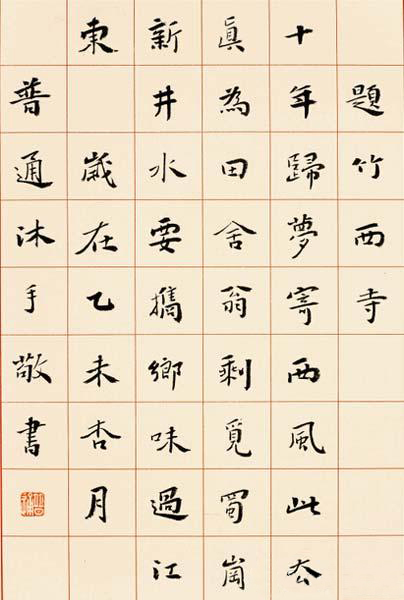 題竹西寺
十年歸夢寄西風此去
眞為田舍翁剩覓蜀崗
新井水要攜鄉味過江
東 歲在乙未杏月
普通沐手敬書